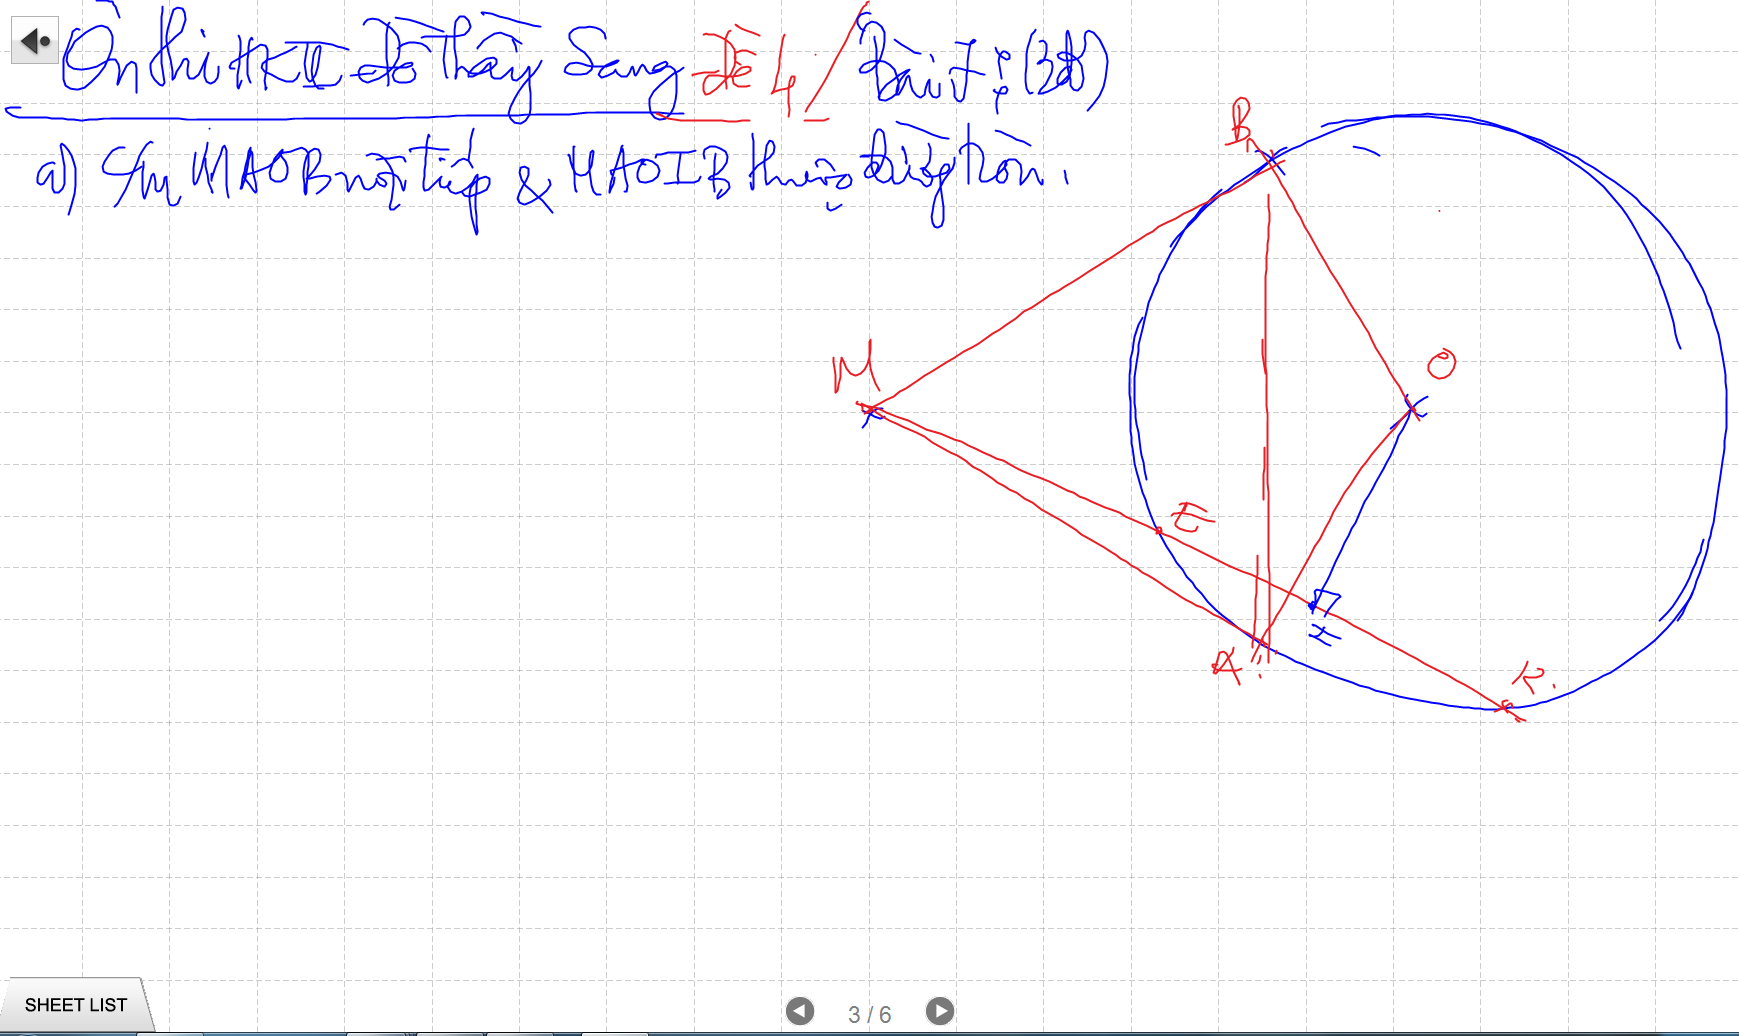 Ôn thi HKII đồ Thầy Sang đề 4/ Bài 7: (3đ)
a) C/m MAOB nội tiếp & MAOIB thuộc đường tròn.
B
M
O
E
I
A
K
SHEET LIST
3 / 6